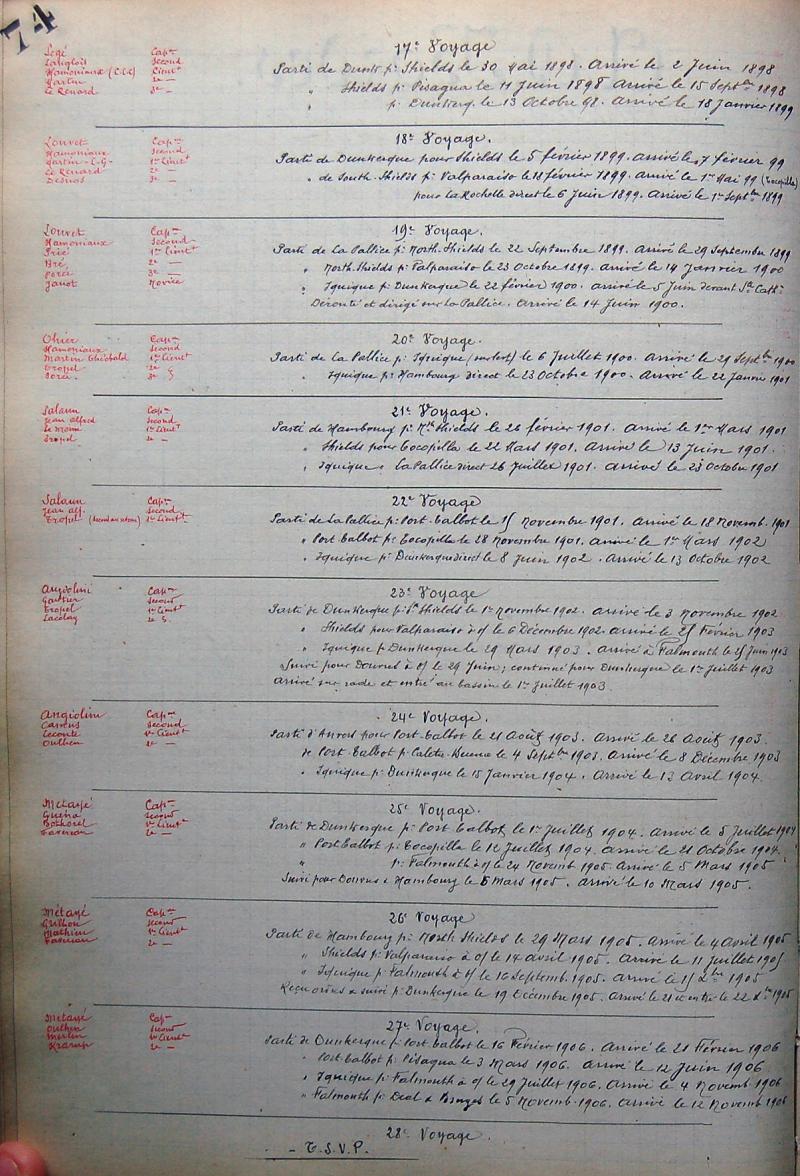 74
17e Voyage
Légé Cap.ne
Langlois Second
Hamoniaux (C.L.C) Lieut.t
Martin 2e —
Le Renard 3e —
Parti de Dunk. p.r Shields le 30 Mai 1898. Arrivé le 2 Juin 1898
" Shields p.r Pisagua le 11 Juin 1898 Arrivé le 15 Sept.bre 1898
" p.r Dunkerq. le 13 Octobre 98. Arrivé le 18 Janvier 1899
18e Voyage.
Louvet Cap.ne
Hamoniaux Second
Martin - L-G- 1er Lieut.t
Le Renard 2e —
Desnos 3e —
Parti de Dunkerque pour Shields le 5 février 1899. arrivé le 7 février 99
" de South-Shields p.r Valparaiso le 18 février 1899. Arrivé le 1er Mai 99 (Tocopilla)
pour La Rochelle direct le 6 Juin 1899. Arrivé le 1er Sept.bre 1899
19e Voyage.
Louvet Cap.ne
Hamoniaux Second
1er Lieut.t
2e —
3e —
Novice
Parti de La Pallice p.r North-Shields le 22 Septembre 1899. Arrivé le 29 Septembre 1899
" North-Shields p.r Valparaiso le 23 Octobre 1899. arrivé le 14 Janvier 1900
" Iquique p.r Dunkerque le 22 février 1900. arrivé le 5 Juin devant Ste Cath.
Dérouté et dirigé sur La Pallice. Arrivé le 14 Juin 1900.
20e Voyage.
Ohier Cap.ne
Hamoniaux Second
Martin Théobald 1er Lieut.t
Tropel 2e
3e
Parti de La Pallice p.r Iquique (sur lest) le 6 Juillet 1900. Arrivé le 29 Sept.bre 1900
" Iquique p.r Hambourg direct le 23 Octobre 1900. Arrivé le 22 Janvier 1901
21e Voyage.
Salaun Cap.ne
Jean Alfred Second
1er Lieut.t
Tropel 2e —
Parti de Hambourg p.r Nth Shields le 26 février 1901. Arrivé le 1er Mars 1901
" Shields pour Tocopilla le 22 Mars 1901. Arrivé le 13 Juin 1901.
" Iquique " La Pallice direct 26 Juillet 1901. Arrivé le 23 Octobre 1901
22e Voyage
Salaun Cap.ne
Jean Alf. Second
Tropel (Second au retour) 1er Lieut.t
Parti de La Pallice p.r Port-Talbot le 15 Novembre 1901. Arrivé le 18 Novemb. 1901
" Port-Talbot p.r Tocopilla le 28 Novembre 1901. Arrivé le 1er Mars 1902
" Iquique p.r Dunkerque direct le 8 Juin 1902. Arrivé le 13 Octobre 1902
23e Voyage
Angiolini Cap.ne
Gautier Second
Tropel 1er Lieut.t
Lacolay
Parti de Dunkerque p.r Sth Shields le 1er Novembre 1902. arrivé le 3 Novembre 1902
" Shields pour Valparaiso à o/ le 6 Décembre 1902. arrivé le 25 Février 1903
" Iquique p.r Dunkerque le 29 Mars 1903. Arrivé à Falmouth le 25 Juin 1903
Suivi pour Douvres à o/ le 29 Juin; continué pour Dunkerque le 1er Juillet 1903
Arrivé sur rade et entré au bassin le 1er Juillet 1903.
24e Voyage.
Angiolini Cap.ne
Second
Leconte 1er Lieut.t
Outhen 2e —
Parti d'Anvers pour Port-Talbot le 21 Août 1903. Arrivé le 26 Août 1903.
" de Port-Talbot p.r Caleta-Buena le 4 Sept.bre 1903. Arrivé le 8 Décembre 1903
" Iquique p.r Dunkerque le 15 Janvier 1904. Arrivé le 13 Avril 1904.
25e Voyage.
Métayé Cap.ne
Guéna Second
Bothorel 1er Lieut.t
2e —
Parti de Dunkerque p.r Port Talbot le 1er Juillet 1904. Arrivé le 5 Juillet 1904
" Port Talbot p.r Tocopilla le 12 Juillet 1904. Arrivé le 21 Octobre 1904.
" p.r Falmouth à o/ le 24 Novemb. 1905. Arrivé le 5 Mars 1905
Suivi pour Douvres & Hambourg le 6 Mars 1905. Arrivé le 10 Mars 1905.
26e Voyage
Métayé Cap.ne
Grillon Second
Mathieu 1er Lieut.t
2e —
Parti de Hambourg p.r North Shields le 29 Mars 1905. arrivé le 4 avril 1905
" Shields p.r Valparaiso à o/ le 14 avril 1905. Arrivé le 11 Juillet 1905
" Iquique p.r Falmouth à o/ le 16 Septemb. 1905. Arrivé le 15 Xbre 1905
Reçu ordres & suivi p.r Dunkerque le 19 Décembre 1905. Arrivé le 21 et entré le 22 Xbre 1905
27e Voyage.
Métayé Cap.ne
Outhen Second
Merlin 1er Lieut.t
2e —
Parti de Dunkerque p.r Port Talbot le 16 Février 1906. Arrivé le 21 Février 1906
" Port-Talbot p.r Pisagua le 3 Mars 1906. Arrivé le 12 Juin 1906
" Iquique p.r Falmouth à o/ le 29 Juillet 1906. Arrivé le 4 Novemb. 1906
" Falmouth p.r Deal & Bruges le 5 Novemb. 1906. Arrivé le 12 Novemb. 1906
28e Voyage.
- T.S.V.P.